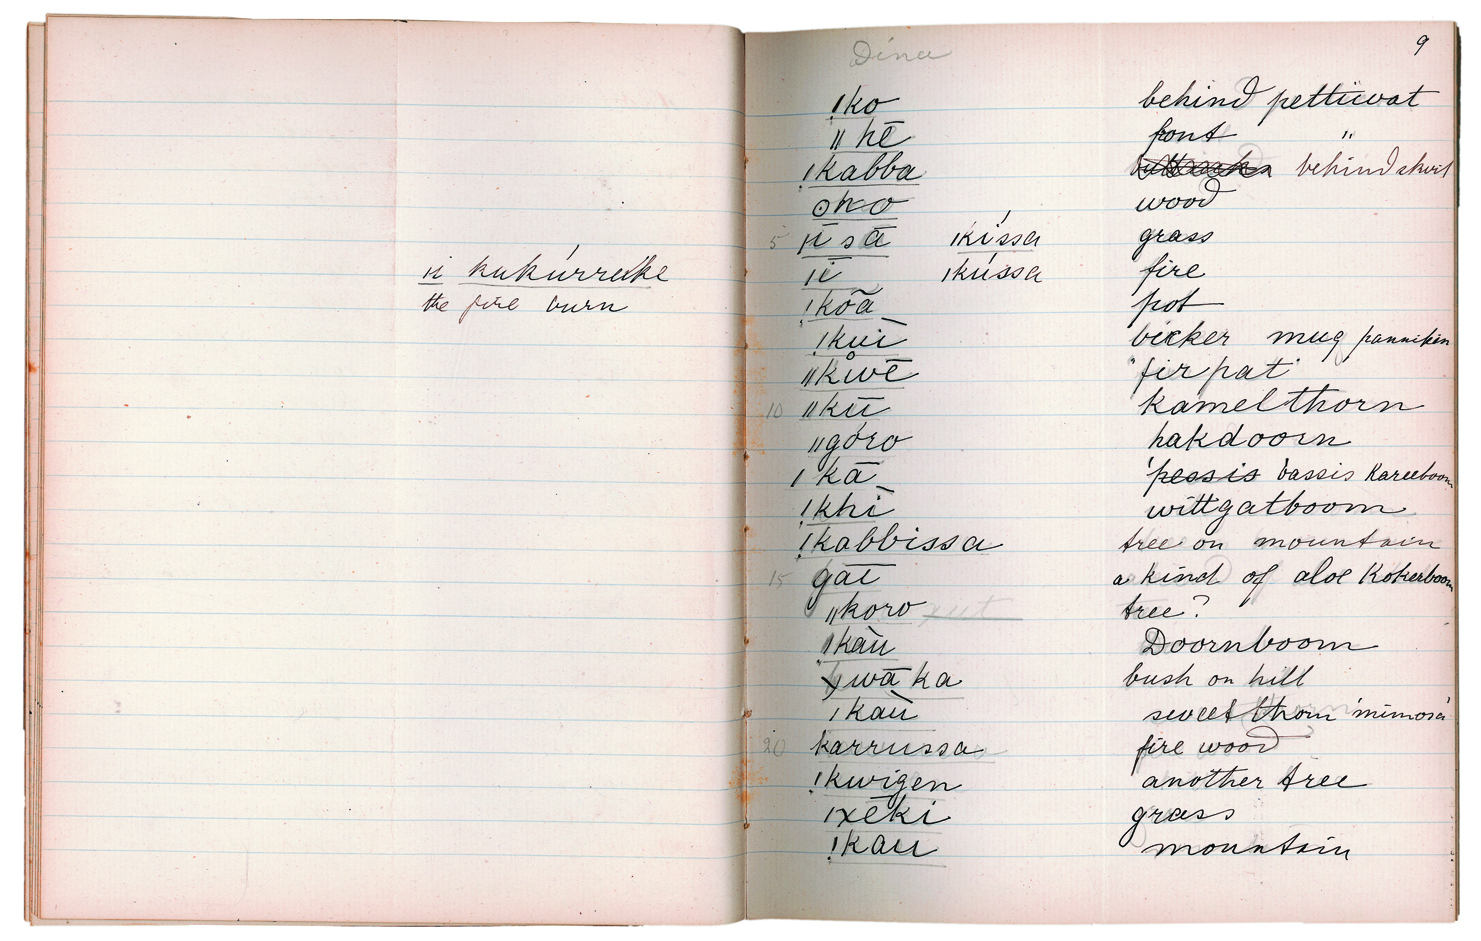 ıi kukúrruke
the fire burn
Dina
9
!ko behind petticoat
ǁ hē front "
!kabba behind skirt
ʘho wood
5 ǀī sā ǀkíssa grass
ǀī ǀkússa fire
!kõa pot
!kuì bicker mug pannikin
ǁkůvē 'fir pat'
10 ǁkū kamelthorn
ǁgóro hakdoorn
ǀ kā 'pessis bassis Kareeboom
!khì wittgatboom
!kabbissa tree on mountain
15 gāī a kind of aloe Kokerboom
ǁkoro xut tree?
ǀkàu Doornboom
wā ka bush on hill
ǀ kaù sweet thorn 'mimosa'
20 karrussa fire wood
!kwigen another tree
ǀxēki grass
!kau mountain